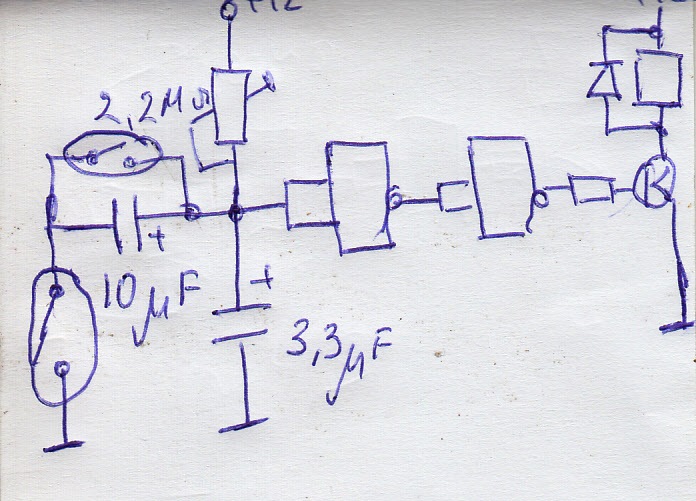 +12
2,2MΩ
+
10μF
+
3,3μF